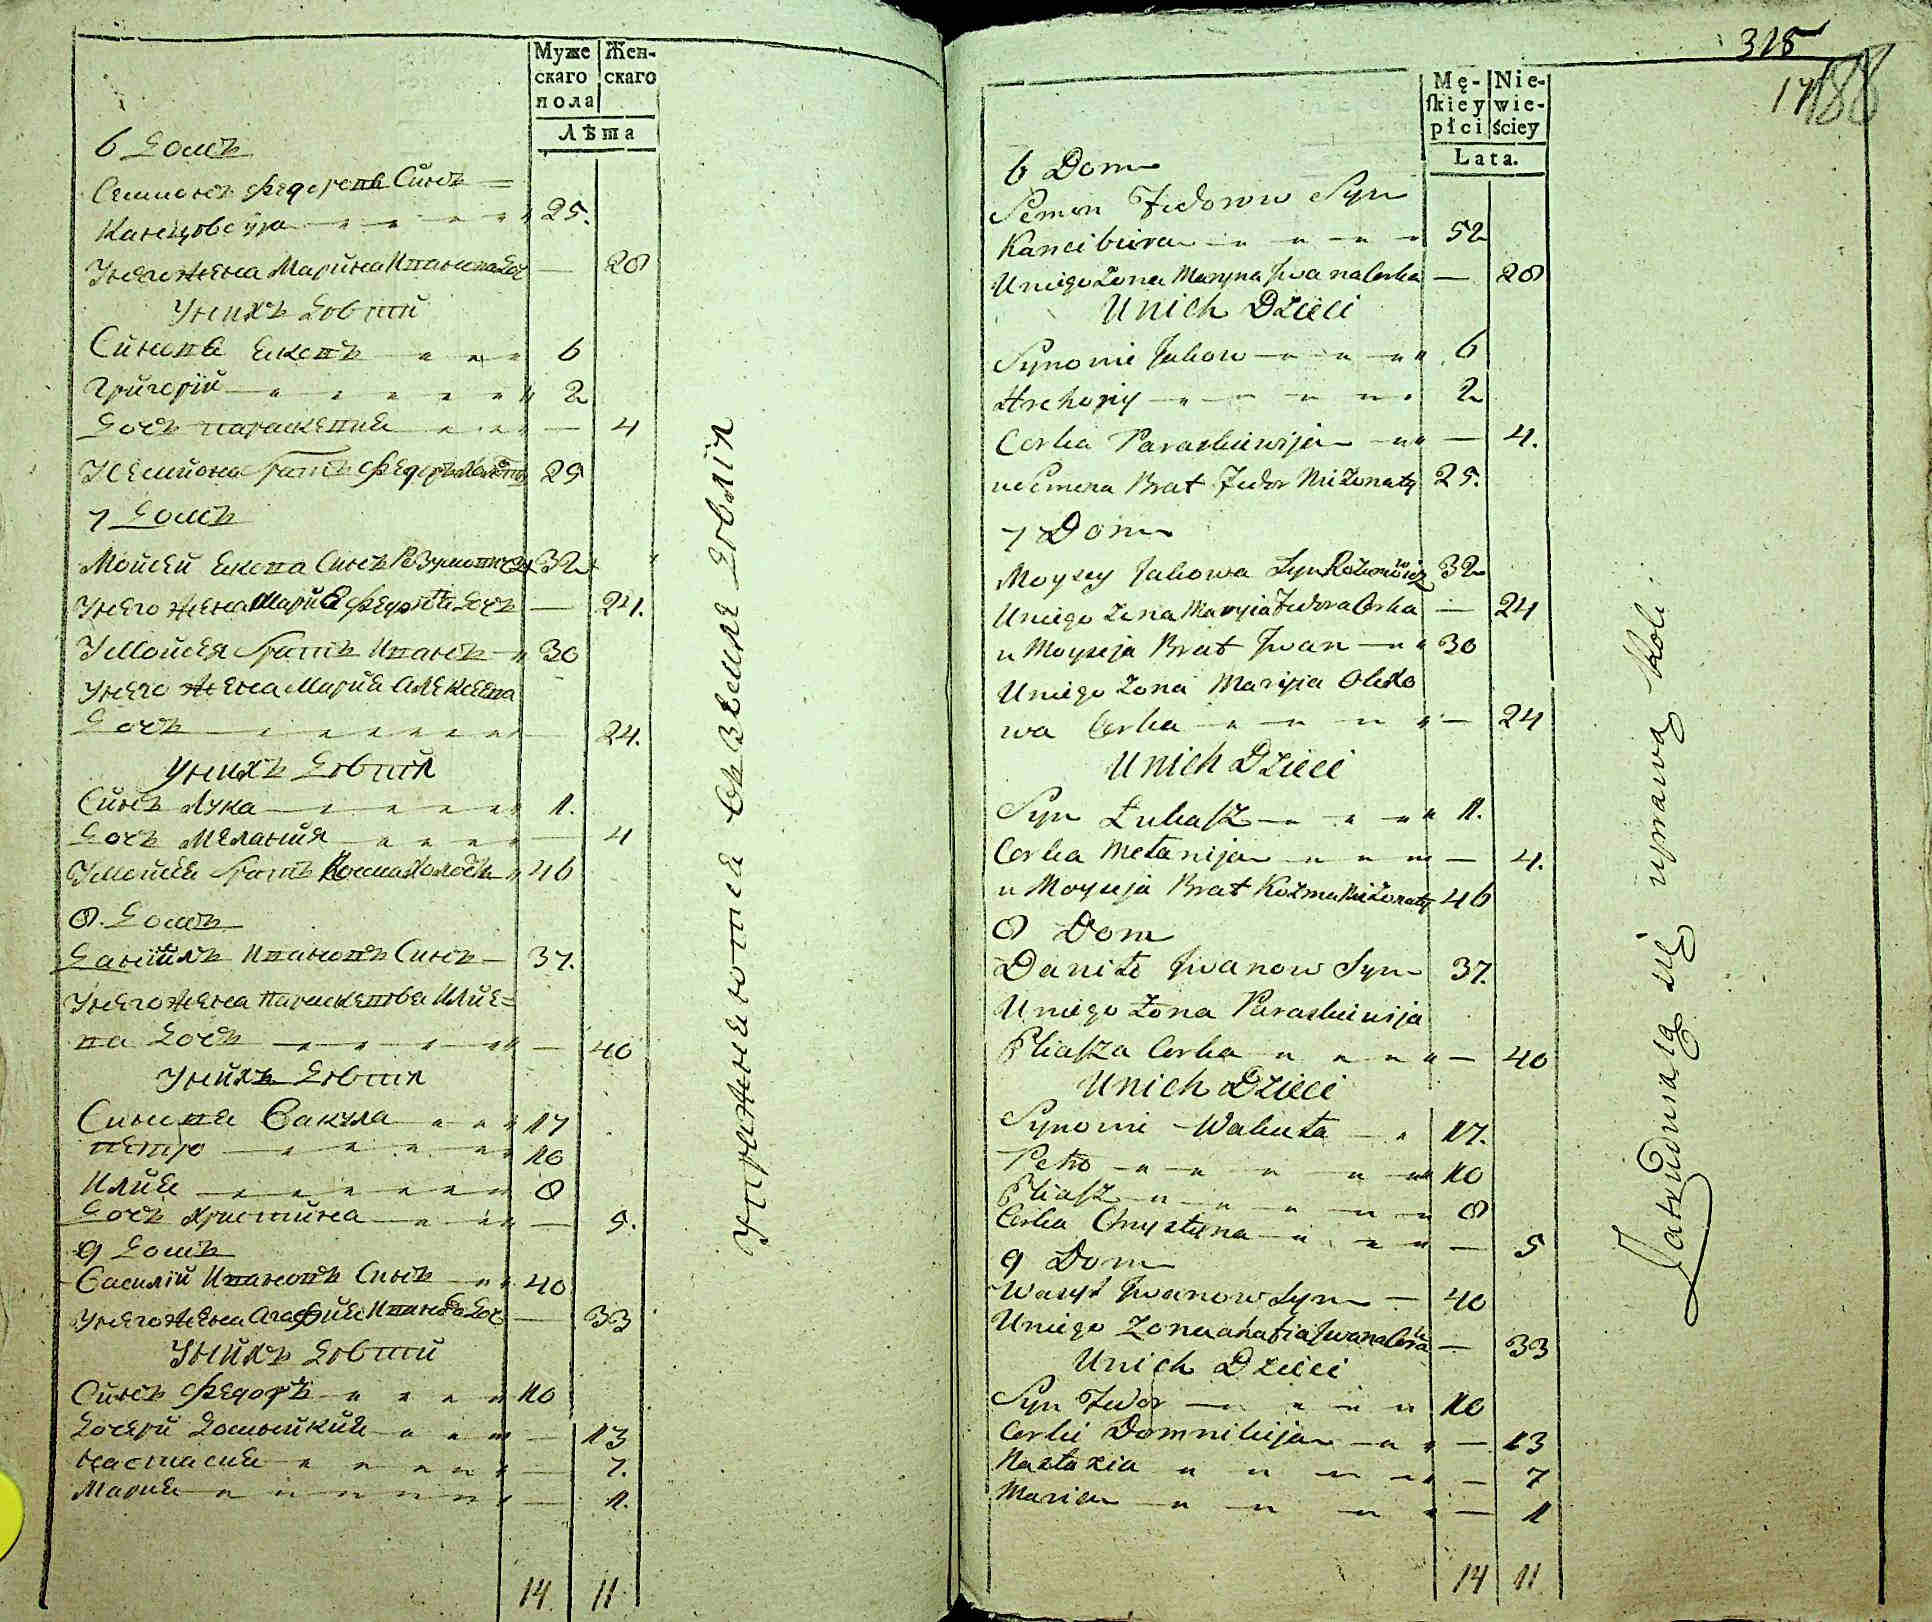 Муже
скаго
пола
Жен-
скаго
Лѣта
6 Домъ
Семионъ Федоровъ Синъ
Канцѣбѹра 25.
Унего жена Марина Иванова Доч — 28
Унихъ Дѣти
Синове Яковъ 6
Григорій 2
Дочъ Параскевия — 4
У Семиона братъ Федоръ 25
7 Домъ
Мойсей Якова Синъ 32
Унего жена Мария Федора Дочъ — 24.
У Мойсея братъ Иванъ 30
Унего жена Мария Алексеева
Дочъ — 24.
Унихъ Дѣтия
Синъ Лука 1.
Дочъ Мелания — 4
У Мойсея братъ Козма 46
8 Домъ
Даніилъ Ивановъ Синъ 37.
Унего жена Параскевия Илие=
ва Дочъ — 40
Унихъ Дѣтия
Синове Вакула 17
Петро 10
Илия 8
Дочъ Христина — 5.
9 Домъ
Василій Ивановъ Синъ 40
Унего жена Агафия Иванова Доч — 33
Унихъ Дѣти
Синъ Федоръ 10
Дочери Домникия — 13
Настасия — 7.
Мария — 1.
14 11
Упражняются въ земледѣлія
315
17
188
Mę-
skiey
płci
Nie-
wie-
ściey
Lata.
6 Dom
Semon Fedorow Syn
Kancibura 52
Uniego Zona Maryna Jwana Corka — 28
Unich Dzieci
Synowie Jakow 6
Hrehory 2
Corka Paraskiewija — 4.
u Semena Brat Fedor Nie Zonaty 25.
7 Dom
Moysey Jakowa Syn 32
Uniego Zona Maryia Fedora Corka — 24
u Moyseja Brat Jwan 30
Uniego Zona Maryia Olexo
wa Corka — 24
Unich Dzieci
Syn Łukasz 1.
Corka Mełanija — 4.
u Moyseja Brat Kozma Nie Zonaty 46
8 Dom
Daniło Jwanow Syn 37.
Uniego Zona Paraskiewija
Eliasza Corka — 40
Unich Dzieci
Synowie Wakuła 17.
Petro 10
Eliasz 8
Corka Chrystyna — 5
9 Dom
Wasyl Jwanow Syn — 40
Uniego Zona ahafia Jwana Corka — 33
Unich Dzieci
Syn Fedor 10
Corki Domnikija — 13
Nastazia — 7
Maria — 1
14 11
Zatrudniaią się uprawą Roli